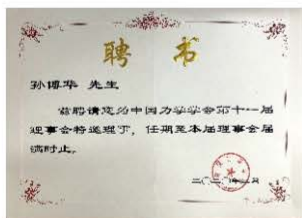 聘书
孙博华 先生
兹聘请您为中国力学学会第十一届
理事会特邀理事，任期至本届理事会届
满时止。